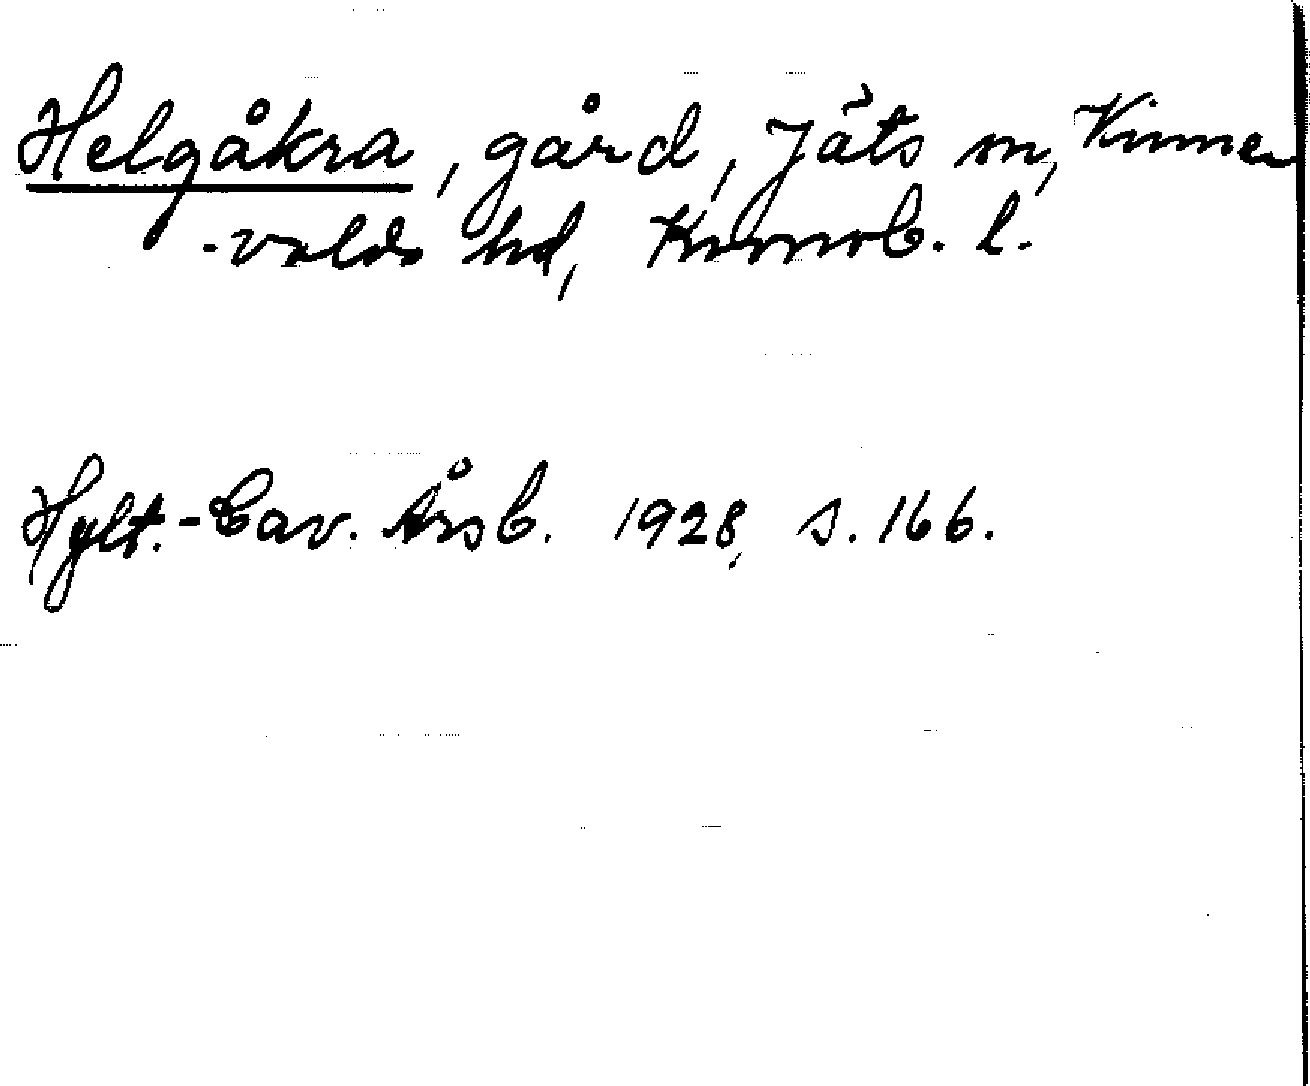 Helgåkra, gård, Jäts sn, Kinne-
-valds hd, Kronob. l.
Hylt.-Cav. Årsb. 1928, s. 166.